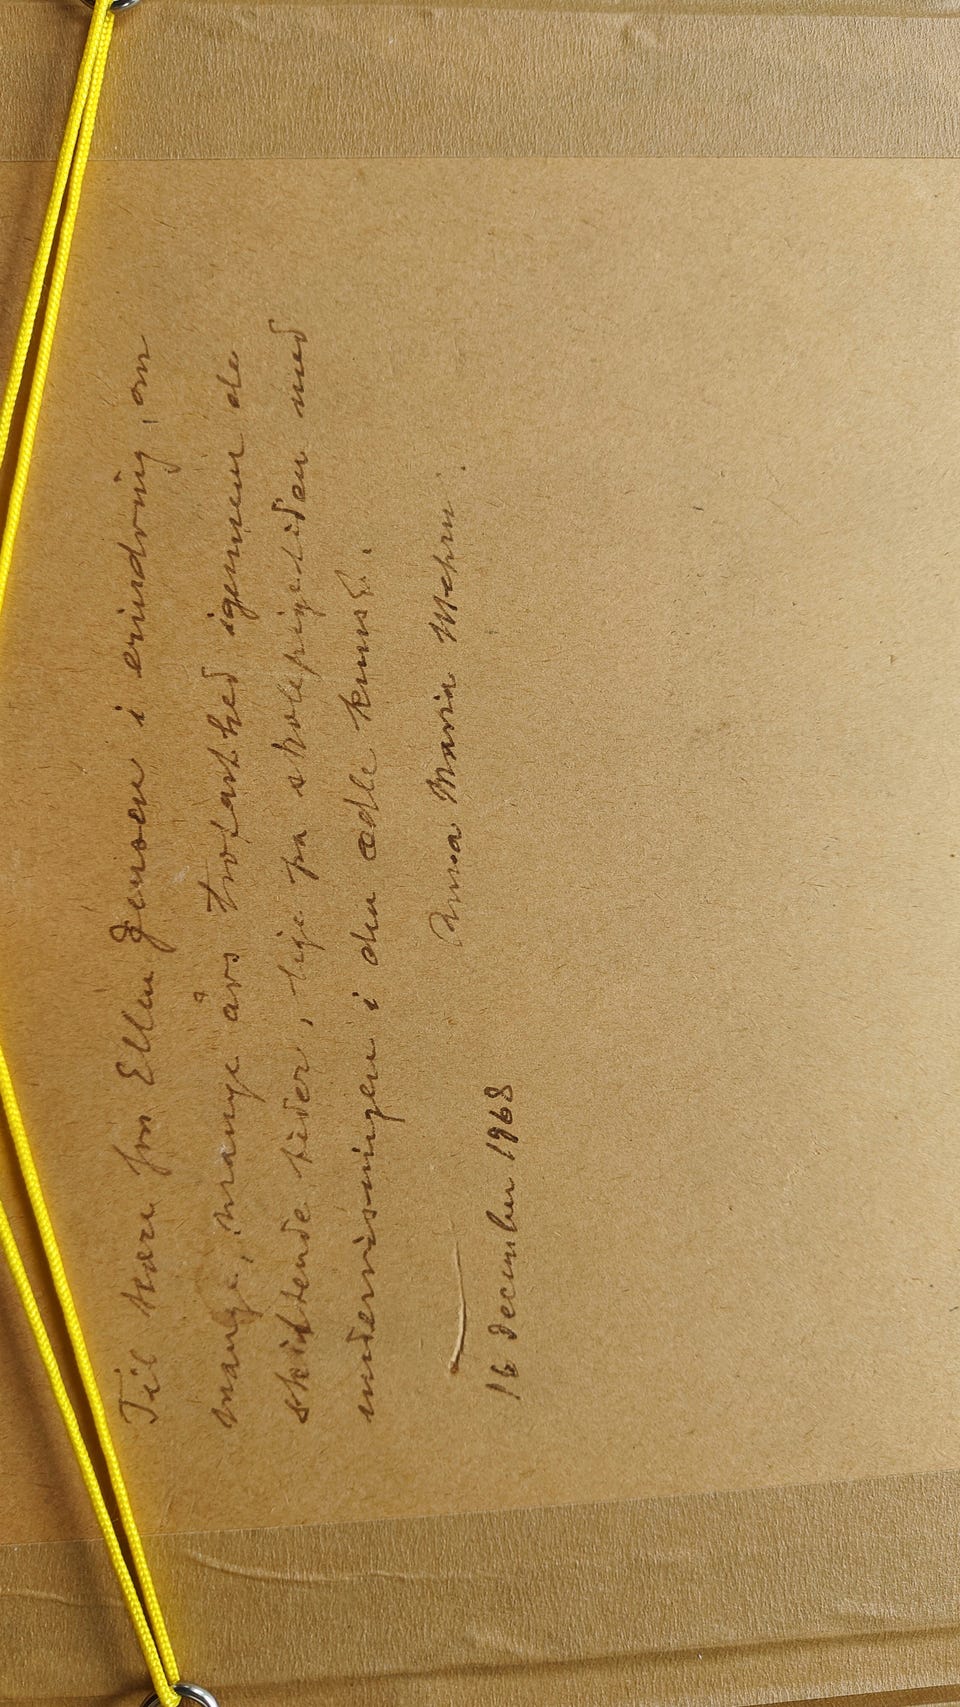 Til kære frk Ellen Jensen i erindring, om
mange, mange års trofasthed igennem de
skiftende tider, lige fra skolepigetiden med
undervisningen i den ædle kunst.
Anna Maria Mehrn.
16 december 1968